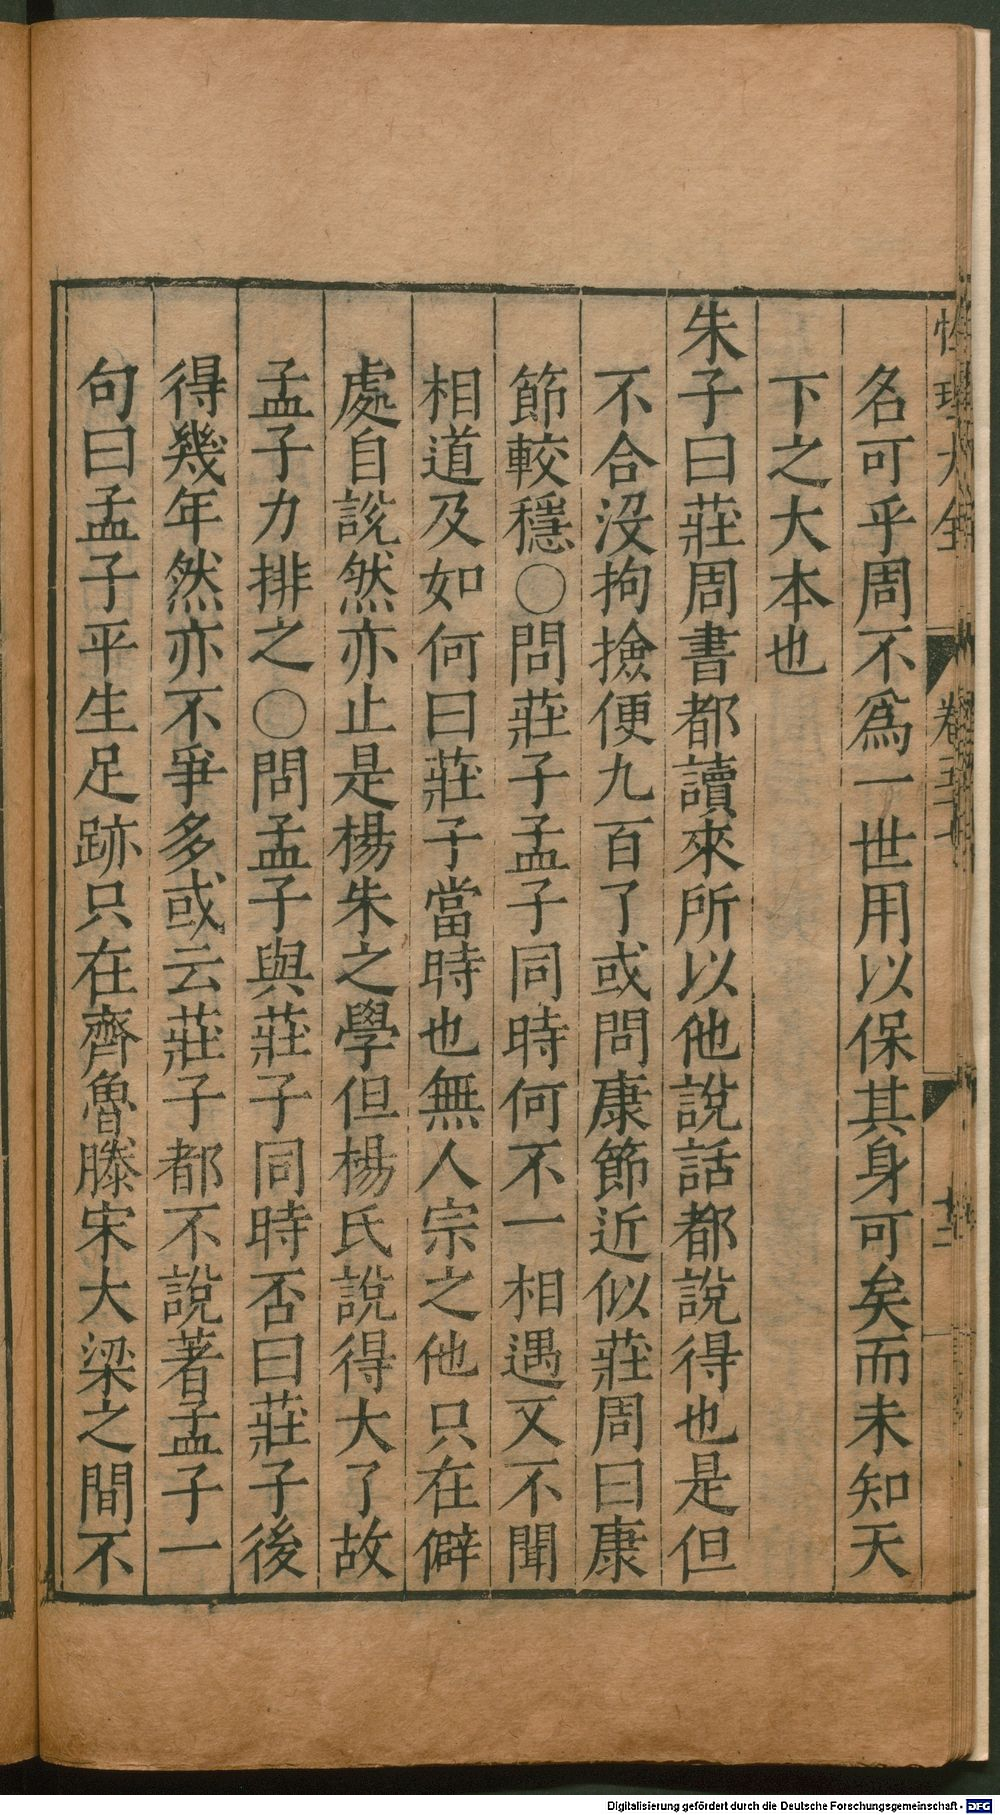 名可乎周不爲一世用以保其身可矣而未知天
下之大本也
朱子曰莊周書都讀來所以他說話都說得也是但
不合没拘撿便九百了或問康節近似莊周曰康
節較穩○問莊子孟子同時何不一相遇又不聞
相道及如何曰莊子當時也無人宗之他只在僻
處自說然亦止是楊朱之學但楊氏說得大了故
孟子力排之○問孟子與莊子同時否曰莊子後
得幾年然亦不爭多或云莊子都不說著孟子一
句曰孟子平生足跡只在齊魯滕宋大梁之間不
Digitalisierung gefördert durch die Deutsche Forschungsgemeinschaft - DFG